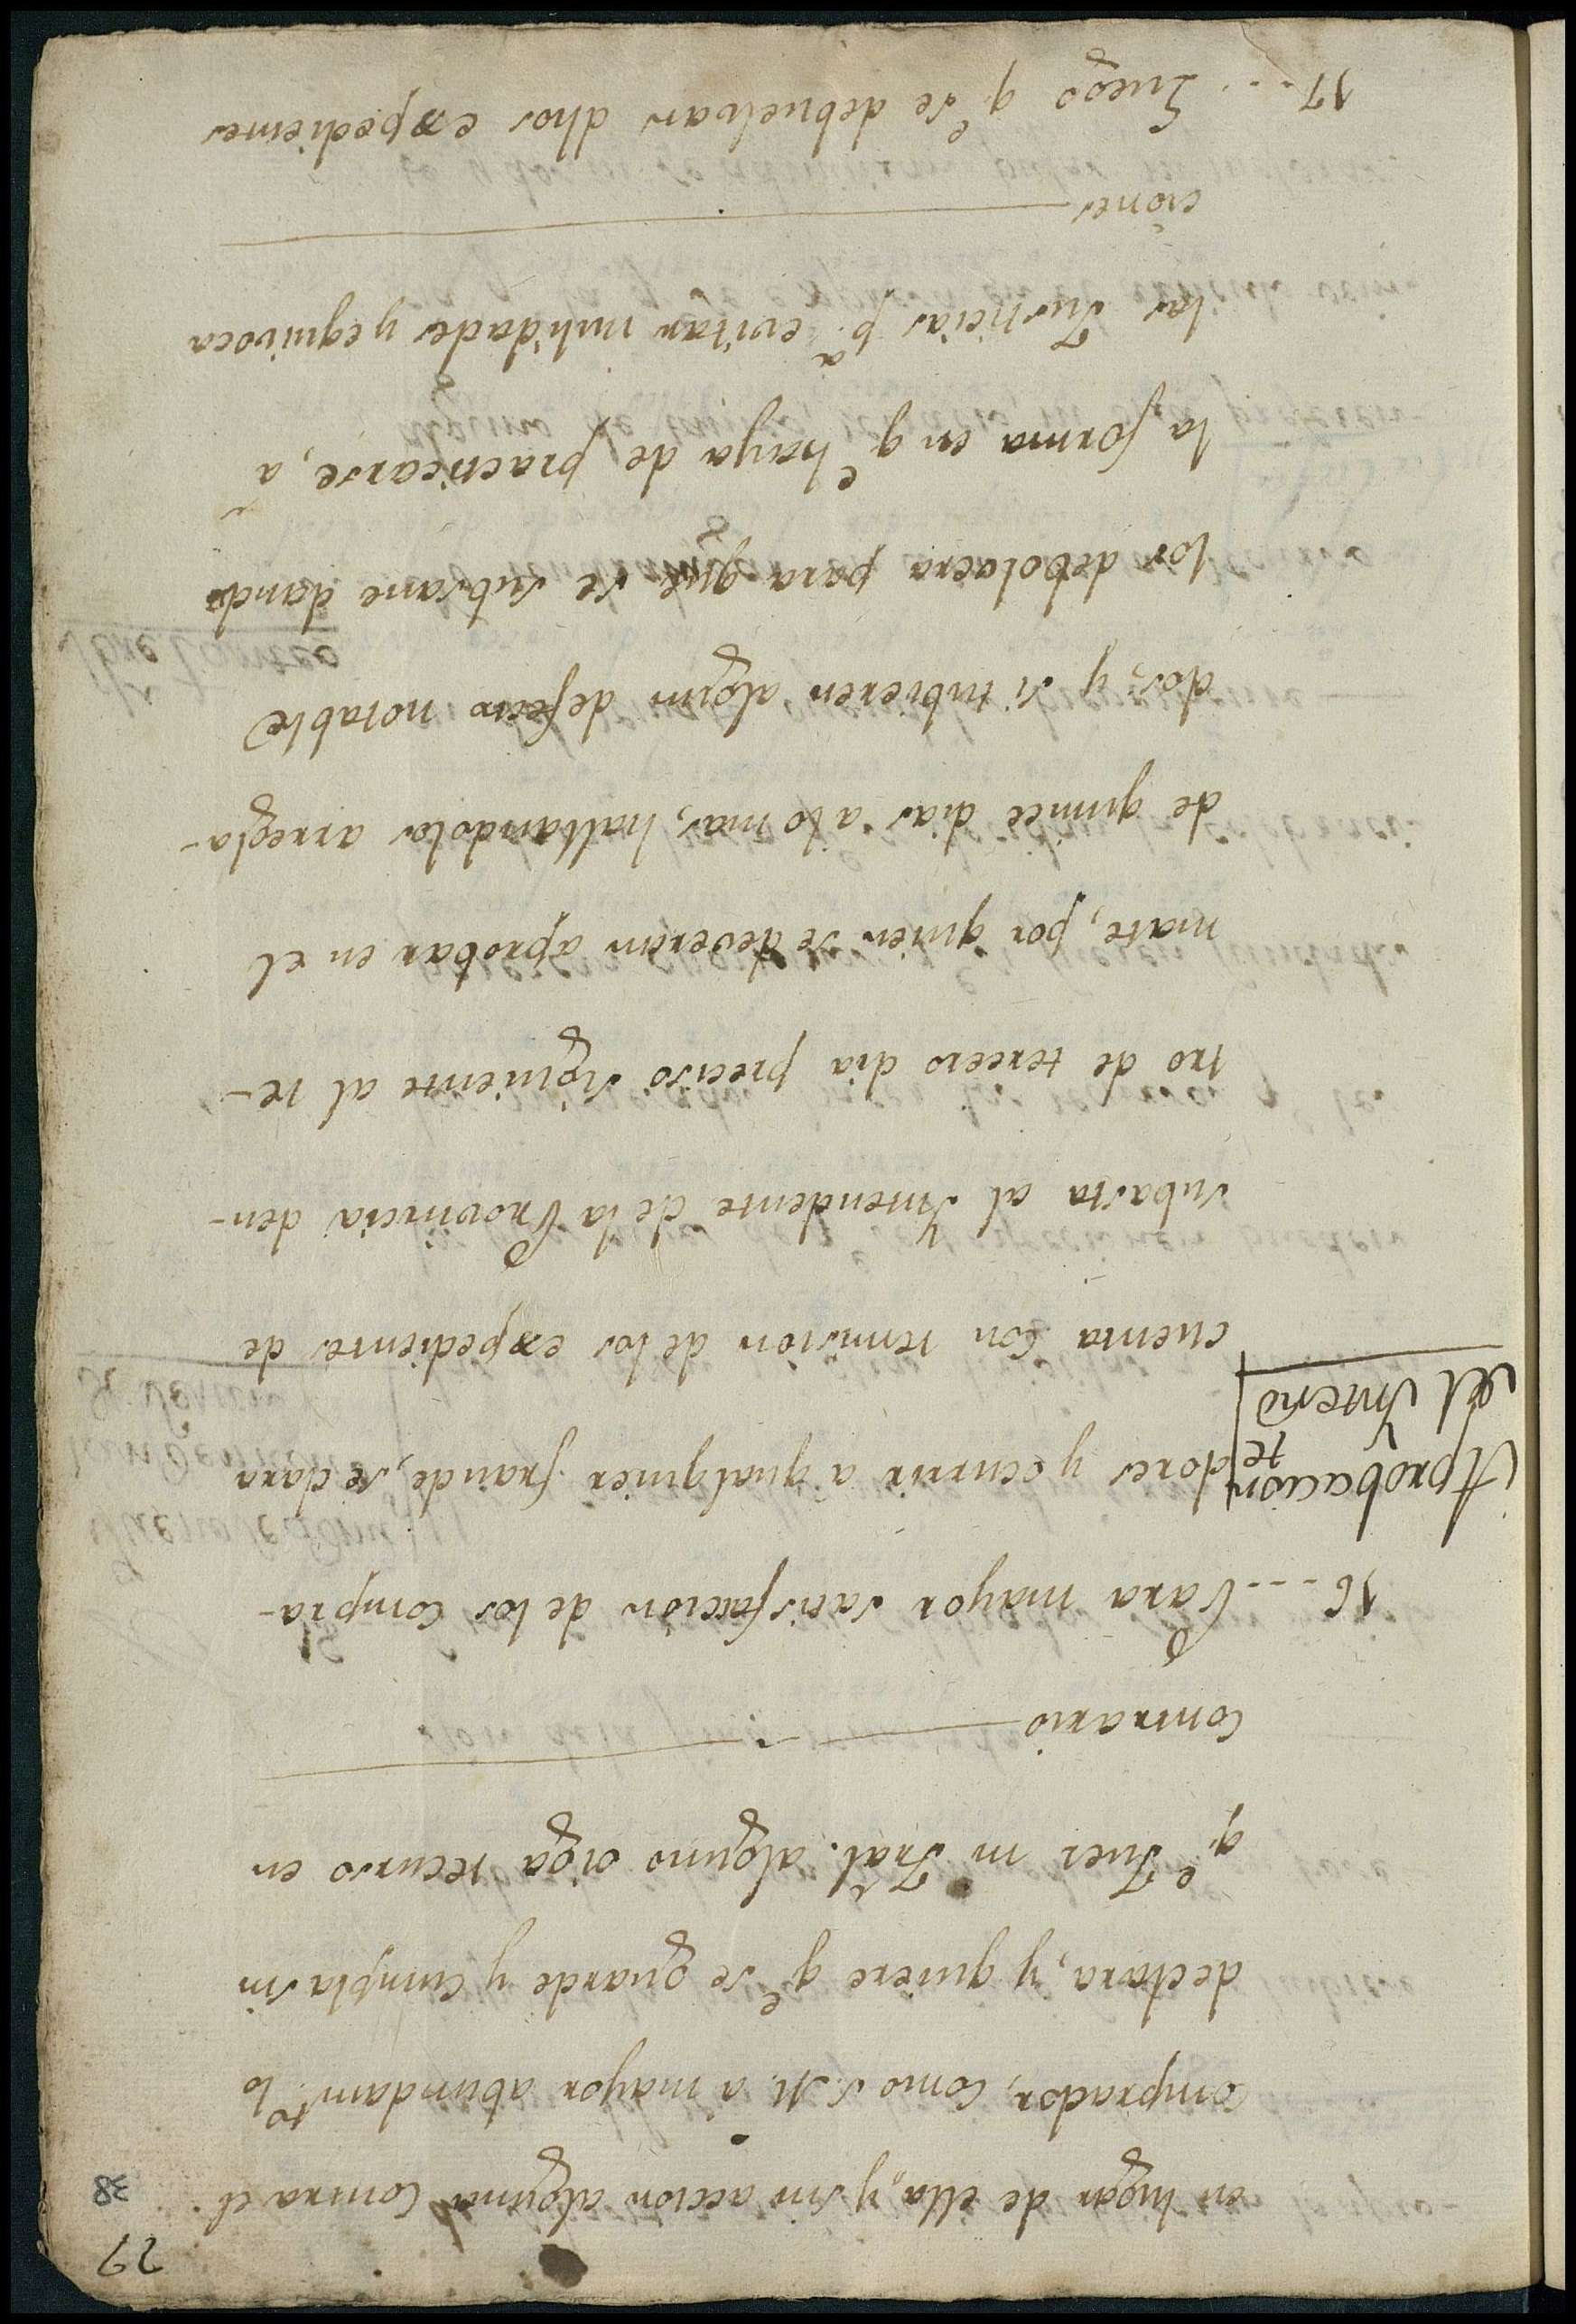 29
38
en lugar de ella, y sin accion alguna contra el
comprador, como S. M. a mayor abundam.to lo
declara, y quiere q.e se guarde y cumpla sin
q.e Juez ni Tral. alguno oiga recurso en
contrario
16... Para mayor satisfaccion de los compra-
Aprobacion
del Intend.te
dores y ocurrir a qualquier fraude, se dara
cuenta con remision de los expedientes de
subasta al Yntendente de la Provincia den-
tro de tercero dia preciso siguiente al re-
mate, por quien se deveran aprobar en el
de quince dias a lo mas, hallandolos arregla-
dos, y si tubieren algun defecto notable
los debolvera para que se subsane dando
la forma en q.e haya de practicarse, a
las Justicias p.a evitar nulidades y equivoca
ciones
17... Luego q.e se debuelvan dhos expedientes